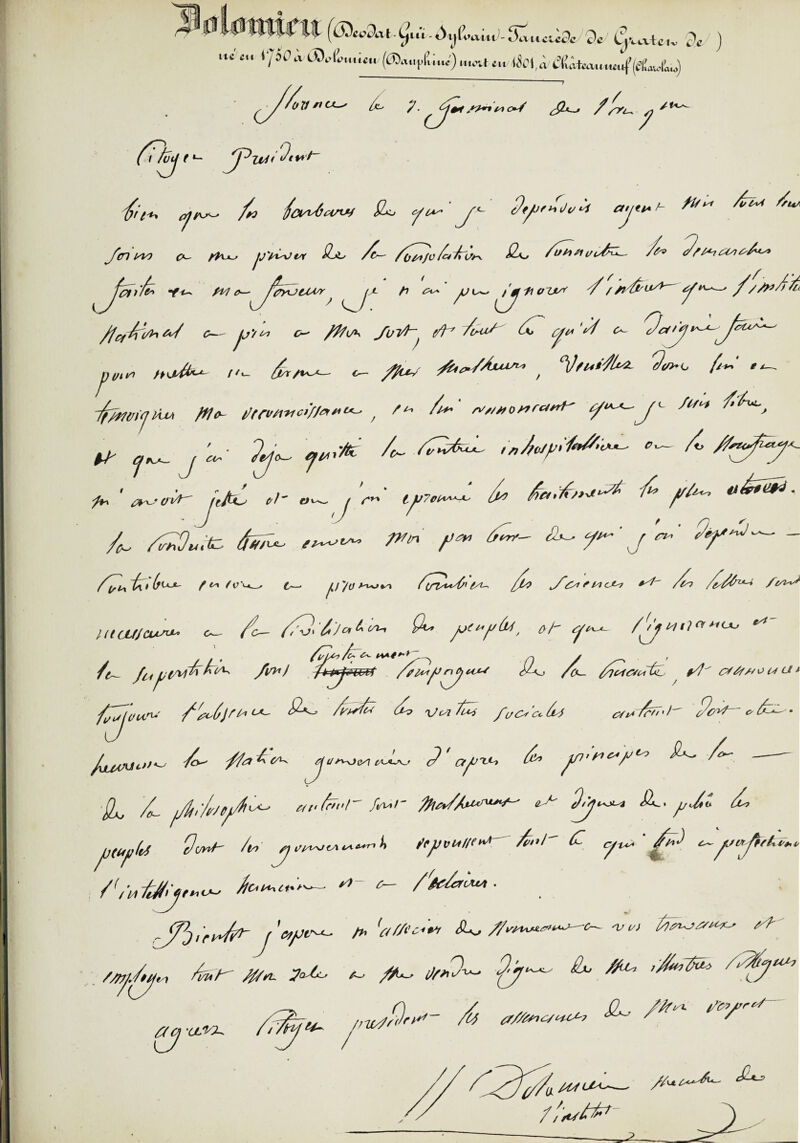 Dolomieu (Deodat-Gui-Sylvain-Tancrède de Gratet de)
né en 1750 à Dolomieu (Dauphiné) mort en 1801, à Châteauneuf (Charolais)
florence le 7. Germinal de l'an 9me
Citoyen President
bien que les barbares de qui je dependois ayent mis tous leurs
soins a me priver de la consolation de connoitre les demarches
faites en ma faveur, je n'ai pu ignorer l'interet que l'institut
National a pris a mon sort, et tout ce qu'il a daigné faire
pour mettre un terme a mes malheurs, Veuillez donc lui en
temoigner ma reconnaissance, en lui annoncant que je suis libre,
et que j'ai deja quitté la contrée inhospitalliere ou le Naufrage
m'avoit jetté et ou j'ai eprouvé les traitements les plus atroces.
la conduite tenue envers moi par ceux de qui j'ai dependu —
contribue encore a prouver combien les sciences et les lettres sont
necessaires a la civilisation des peuples, et que l'ignorance et
la superstition sont constamment compagnes de la cruauté, et annoncent
toujours l'absence de toutes les vertus sociales autant doit etre.
heureuse la Nation gouvernée d'apres les principes de la —
de la philosophie autant sont malheureux et dignes de pitié les
peuples dont les gouvernants repoussent tout ce qui tend a perfectionner
l'intelligence humaine et a l'eclairer.
Bientot j'espere m'associer de Nouveau a vos travaux et
employer tout mon zele a me rendre digne de mes illustres Collegues
agreez Citoyen president les assurances de mon respect
Dolomieu membre de
l'institut